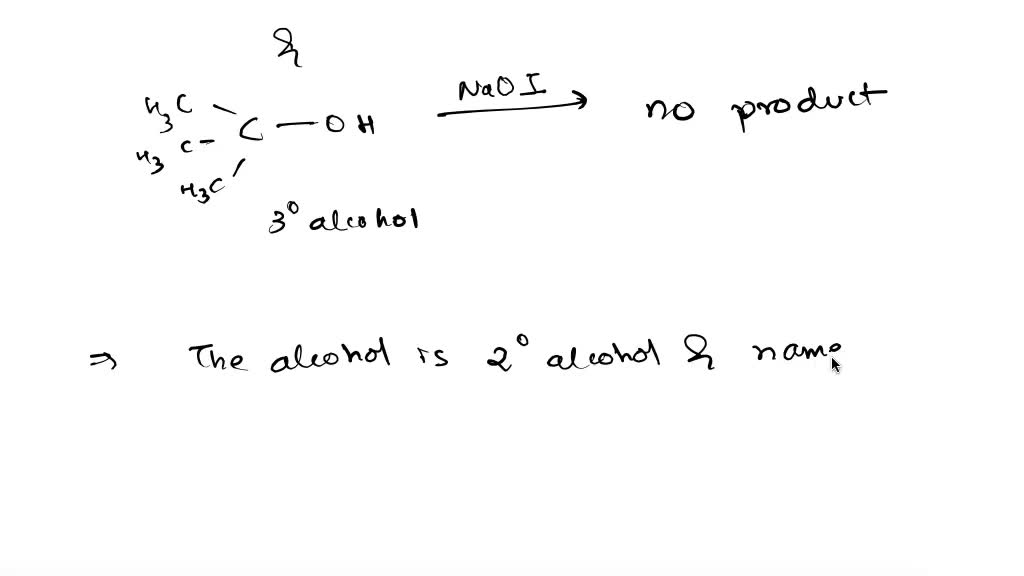 &
H3C
H3C - C - OH NaOI → no product
H3C
3° alcohol
⇒ The alcohol is 2° alcohol & name